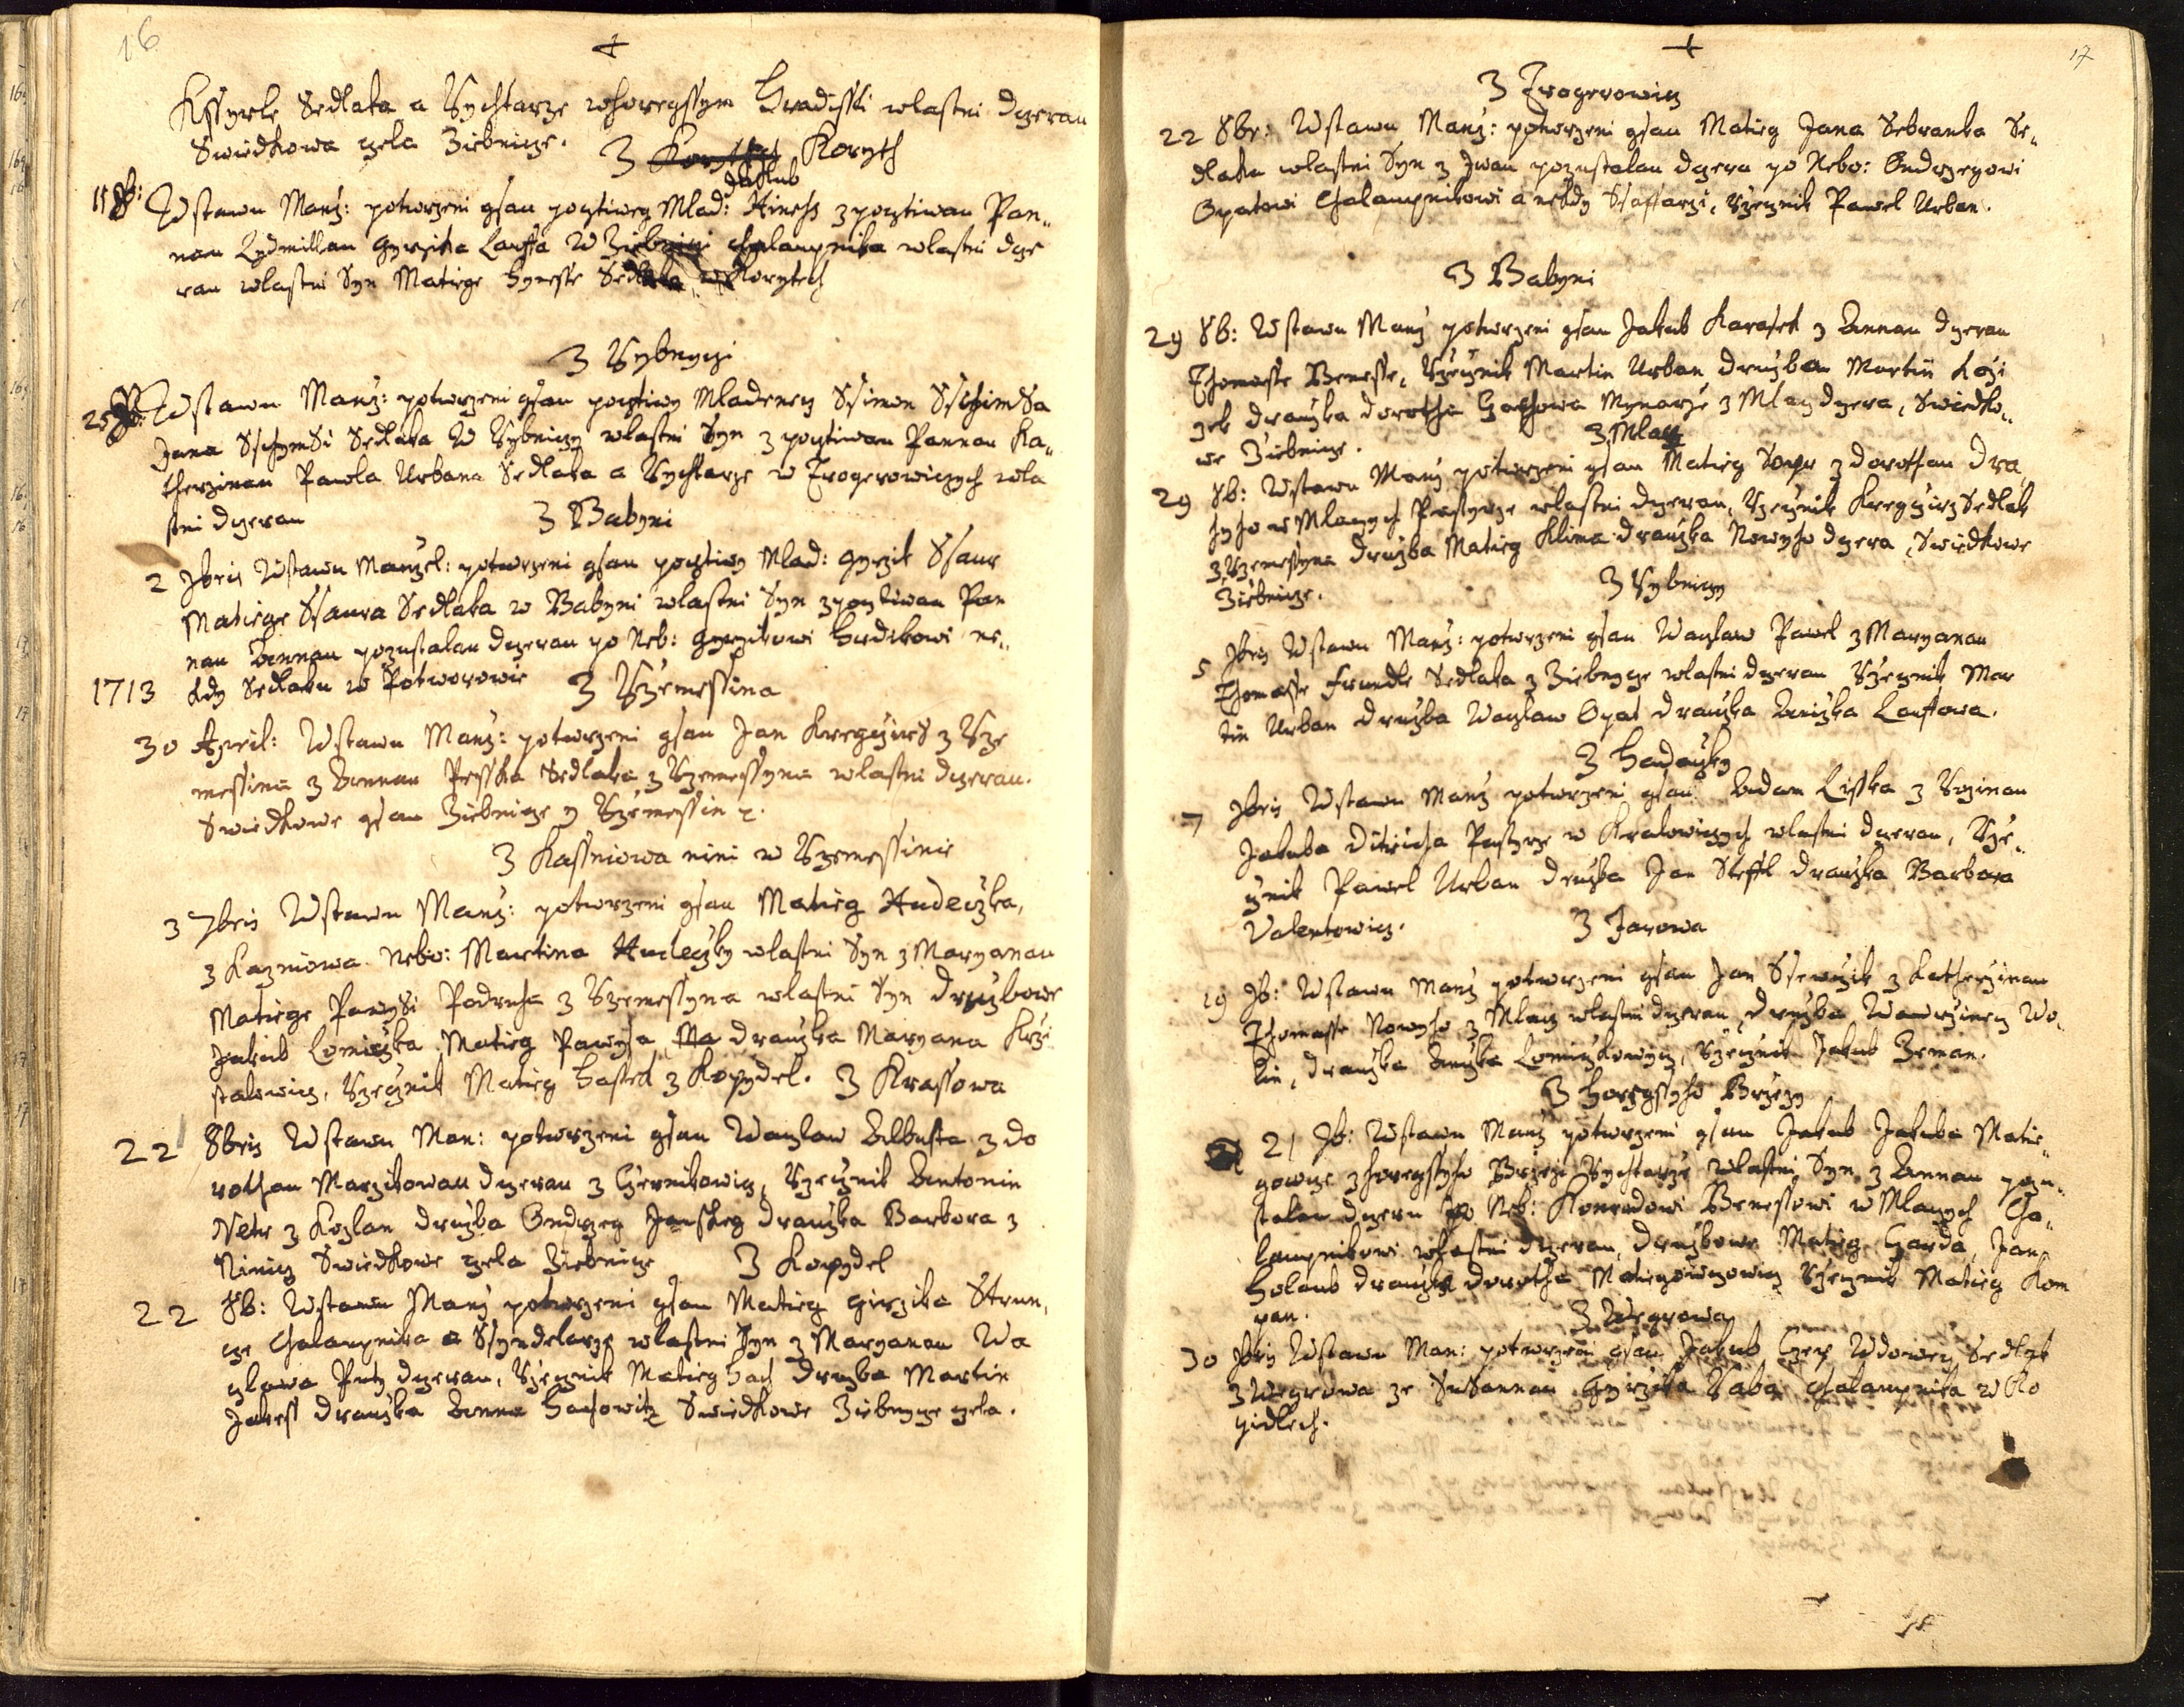 16
+
Kssyrle Sedlaka a Rychtarze whoregssym Hradissti wlastni dczeran
Swiedkowa czela Ziebnicze.
Z Koryth
Jakub
11 Wstawu Manž: potwrzeni gsau pocztiweg Mlad: Hiness z pocztiwau Pan„
nau Lydmillau Gyrzika Lauffa W Ziebnici chalaupnika wlastni dcze
rau wlastni Syn Matiege Hynesse Sedlaka w Korytech
Z Rybnyczi
25 Wstawu Manž: potwrzeni gsau pocztiwy Mladenecz Ssimon Sschimsa
Jana Sschymsi Sedlaka W Rybniczy wlastni Syn z pocztiwau Pannau Ka„
therzinau Pawla Urbana Sedlaka a Rychtarze w Trogerowiczych wla
stni dczerau
Z Babyni
2 Jbris Wstawu Manžel: potwrzeni gsau pocztiwy Mlad: Gyrzik Ssaur
Matiege Ssaura Sedlaka w Babyni wlastni Syn z pocztiwau Pan
nau Annau pozustalau dczerau po Neb: Gyrzikowi Hudikowi ne„
1713 kdy Sedlaku w Potworowie
Z Rzemessina
30 April: Wstawu Manž: potwrzeni gsau Jan Kregczirz z Rze
messina z Annau Pesska Sedlaka z Rzemessyna wlastni dczerau.
Swiedkowe gsau Ziebnicze y Rzemessin
Z Kassniowa nini w Rzemessinie
3 7bris Wstawu Manž: potwrzeni gsau Matieg Hudeczka,
z Kazniowa. Nebo: Martina Hudeczky wlastni Syn z Maryanau
Matiege Pawysi Podruha z Rzemessyna wlastni Syn družbowe
Jakub Lomiczka Matieg Pawysa Ma draužka Maryana Krzi
stalowicz, Rzecznik Matieg Hassek z Kopydel.
Z Krassowa
22 8bris Wstawu Man: potwrzeni gsau Waczlaw Albusta z Do
rothau Marzikowau dczerau z Czernikowicz, Rzecznik Antonin
Netr z Kozlan družba Ondrzeg Janskeg draužka Barbora z
Ninicz Swiedkowe czela Ziebnicze
Z Kopydel
22 8b: Wstawu Manž potwrzeni gsau Matieg Girzika Strun„
cze Chalaupnika a Ssyndelarze wlastni Syn z Maryanau Wa
czlawa Putz dczerau, Rzecznik Matieg Hach družba Martin
Jakess draužka Anna Hachowitz Swiedkowe Ziebnycze czela.
17
+
Z Trogerowicz
22 8br: Wstawu Manž: potwrzeni gsau Matieg Jana Sebranka Se„
dlaka wlastni Syn z Ewau pozustalau dczera po Nebo: Ondrzegowi
Opatowi Chalaupnikowi a nekdy Ssaffarzi, Rzecznik Pawel Urban.
Z Babyni
29 8b: Wstawu Manž potwrzeni gsau Jakub Karasek z Annau dczerau
Thomasse Benesse, Rzecznik Martin Urban družban Martin Kozi
zek draužka Dorotha Hachowa Mynarže z Mlacz dczera, Swiedko„
we Ziebnicze.
Z Mlacz
29 8b: Wstawu Manž potwrzeni gsau Matieg z Dorothau Dra
hyho w Mlaczych Pastyrze wlastni dczerau, Rzecznik Kregczirz Sedlak
z Rzemessyna družba Matieg Klima draužka Nowyho dczera, Swiedkowe
Ziebnicze.
Z Rybnicze
5 Jbris Wstawu Manž: potwrzeni gsau Waczlaw Pawel z Maryanau
Thomasse Frundle Sedlaka z Ziebnycze wlastni dczerau Rzecznik Mar
tin Urban družba Waczlaw Opat draužka Aniczka Lauffowa.
Z Hadaczky
7 Jbris Wstawu Manž potwrzeni gsau Adam Lisska z Rozinau
Jakuba Ditricha Pastyrze w Kralowiczych wlastni dczerau, Rze„
cznik Pawel Urban družba Jan Stessl draužka Barbara
Valentowicz.
Z Jarowa
19 Jb: Wstawu Manž potwrzeni gsau Jan Ssewczik z Katherzinau
Thomasse Nowyho z Mlacz wlastni dczerau, družba Wawrzinecz Wo„
kin, draužka Anežka Lomiczkowycz, Rzecznik Jakub Zeman.
Z Horegssyho Brzezy
21 Jb: Wstawu Manž potwrzeni gsau Jakub Jakuba Matie„
gowcze z horegssyho Brzezi Rychtarze wlastni Syn z Annau pozu„
stalau dczeru po Neb: Konradowi Benessowi w Mlaczych Cha„
laupnikowi wlastni dczerau, družbowe Matieg Czarda, Jan
Holaub draužka Dorotha Matiegowczowicz Rzecznik Matieg Kom
pan.
Z Wegrowa
30 Jbris Wstawu Man: potwrzeni gsau Jakub Czep Wdowecz Sedlak
z Wegrowa ze Susannau Gyrzika Baba Chalaupnika w Ko
pidlech.